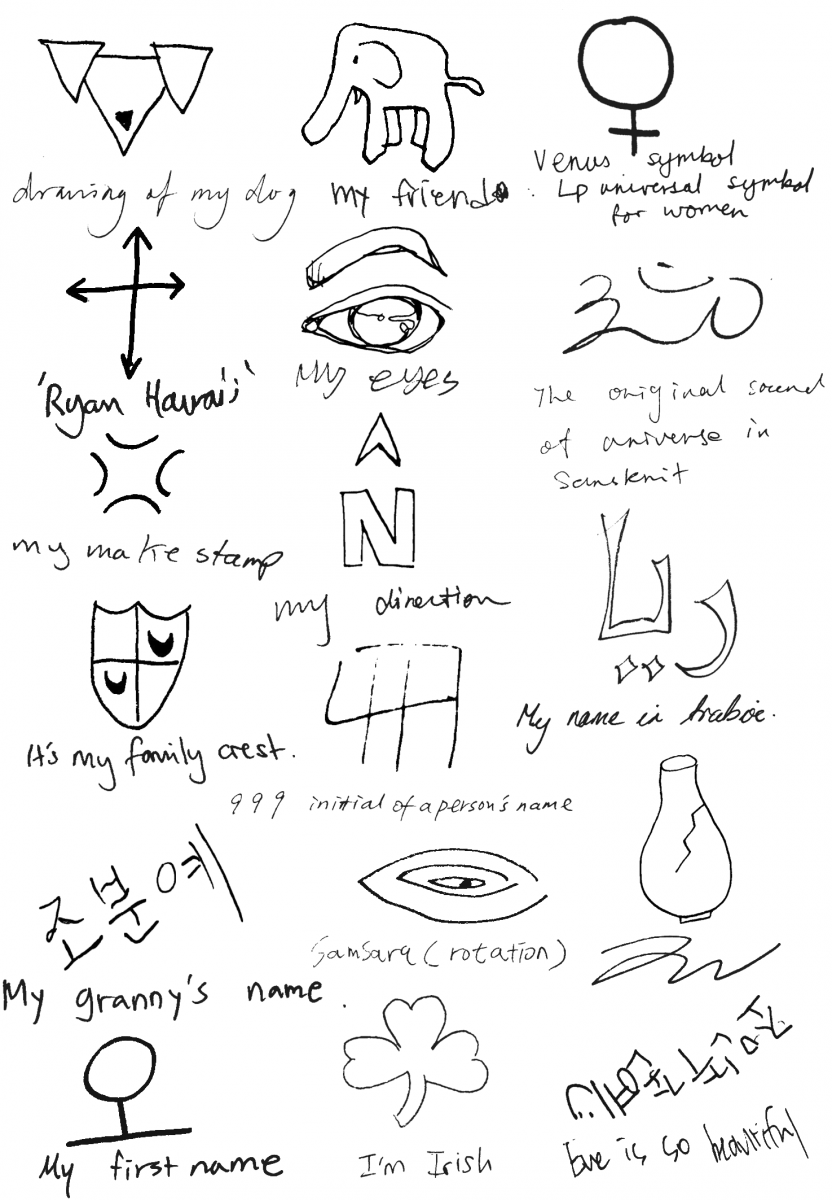 drawing of my dog
my friend
Venus symbol
↳ universal symbol
for women
'Ryan Hawaii'
My eyes
The original sound
of universe in
Sanskrit
my make stamp
N
my direction
ريا
My name in Arabic.
It's my family crest.
999 initial of a person's name
조분예
My granny's name.
Samsara (rotation)
My first name
I'm Irish
is so beautiful